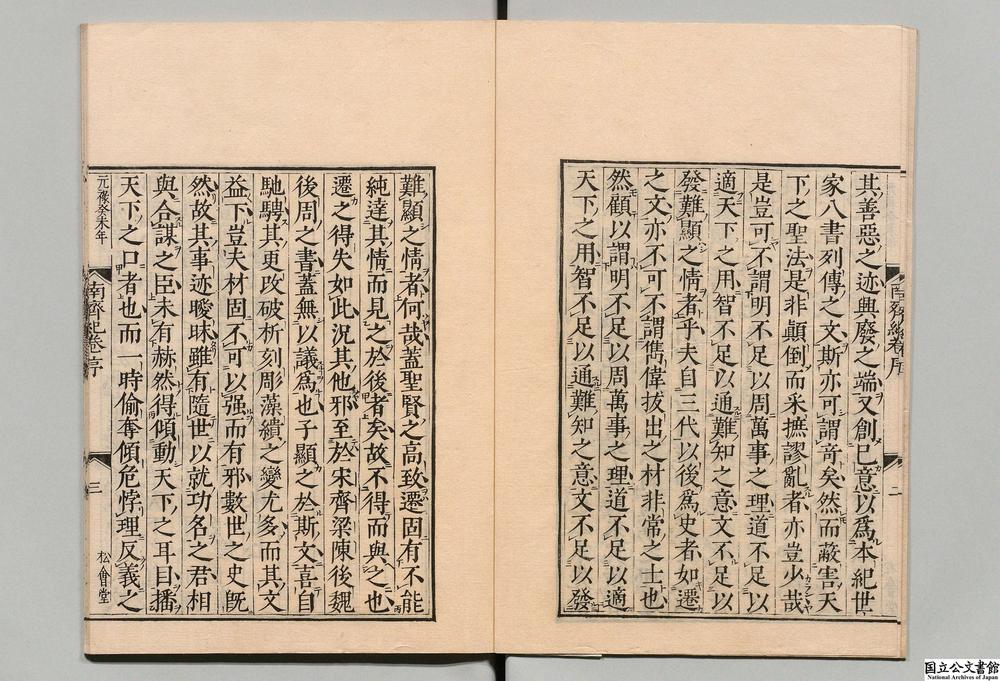 其善惡之迹興廢之端又創己意以爲本紀世
家八書列傳之文斯亦可謂奇矣然而蔽害天
下之聖法是非顛倒而采摭謬亂者亦豈少哉
是豈可不謂明不足以周萬事之理道不足以
適天下之用智不足以通難知之意文不足以
發難顯之情者乎夫自三代以後爲史者如遷
之文亦不可不謂雋偉拔出之材非常之士也
然顧以謂明不足以周萬事之理道不足以適
天下之用智不足以通難知之意文不足以發
南齊紀卷序
二
難顯之情者何哉蓋聖賢之高致遷固有不能
純達其情而見之於後者矣故不得而與之也
遷之得失如此況其他邪至於宋齊梁陳後魏
後周之書蓋無以議爲也子顯之於斯文喜自
馳騁其更改破析刻彫藻繢之變尤多而其文
益下豈夫材固不可以强而有邪數世之史既
然故其事迹曖昧雖有隨世以就功名之君相
與合謀之臣未有赫然得傾動天下之耳目播
天下之口者也而一時偷奪傾危悖理反義之
元祿癸未年
南齊紀卷序
三
松會堂
国立公文書館
National Archives of Japan